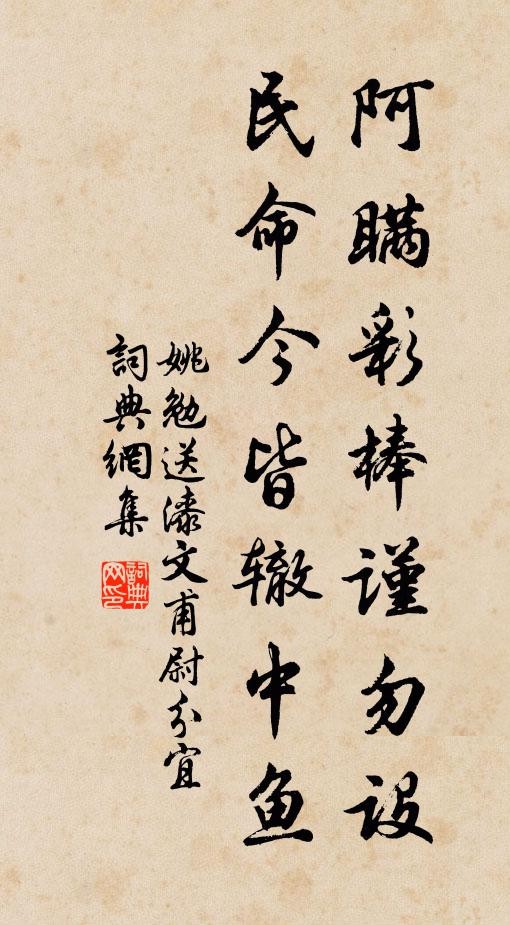 阿瞒彩棒谨勿设
民命今皆辙中鱼
姚勉送漆文甫尉分宜
詞典網集
詞典网印